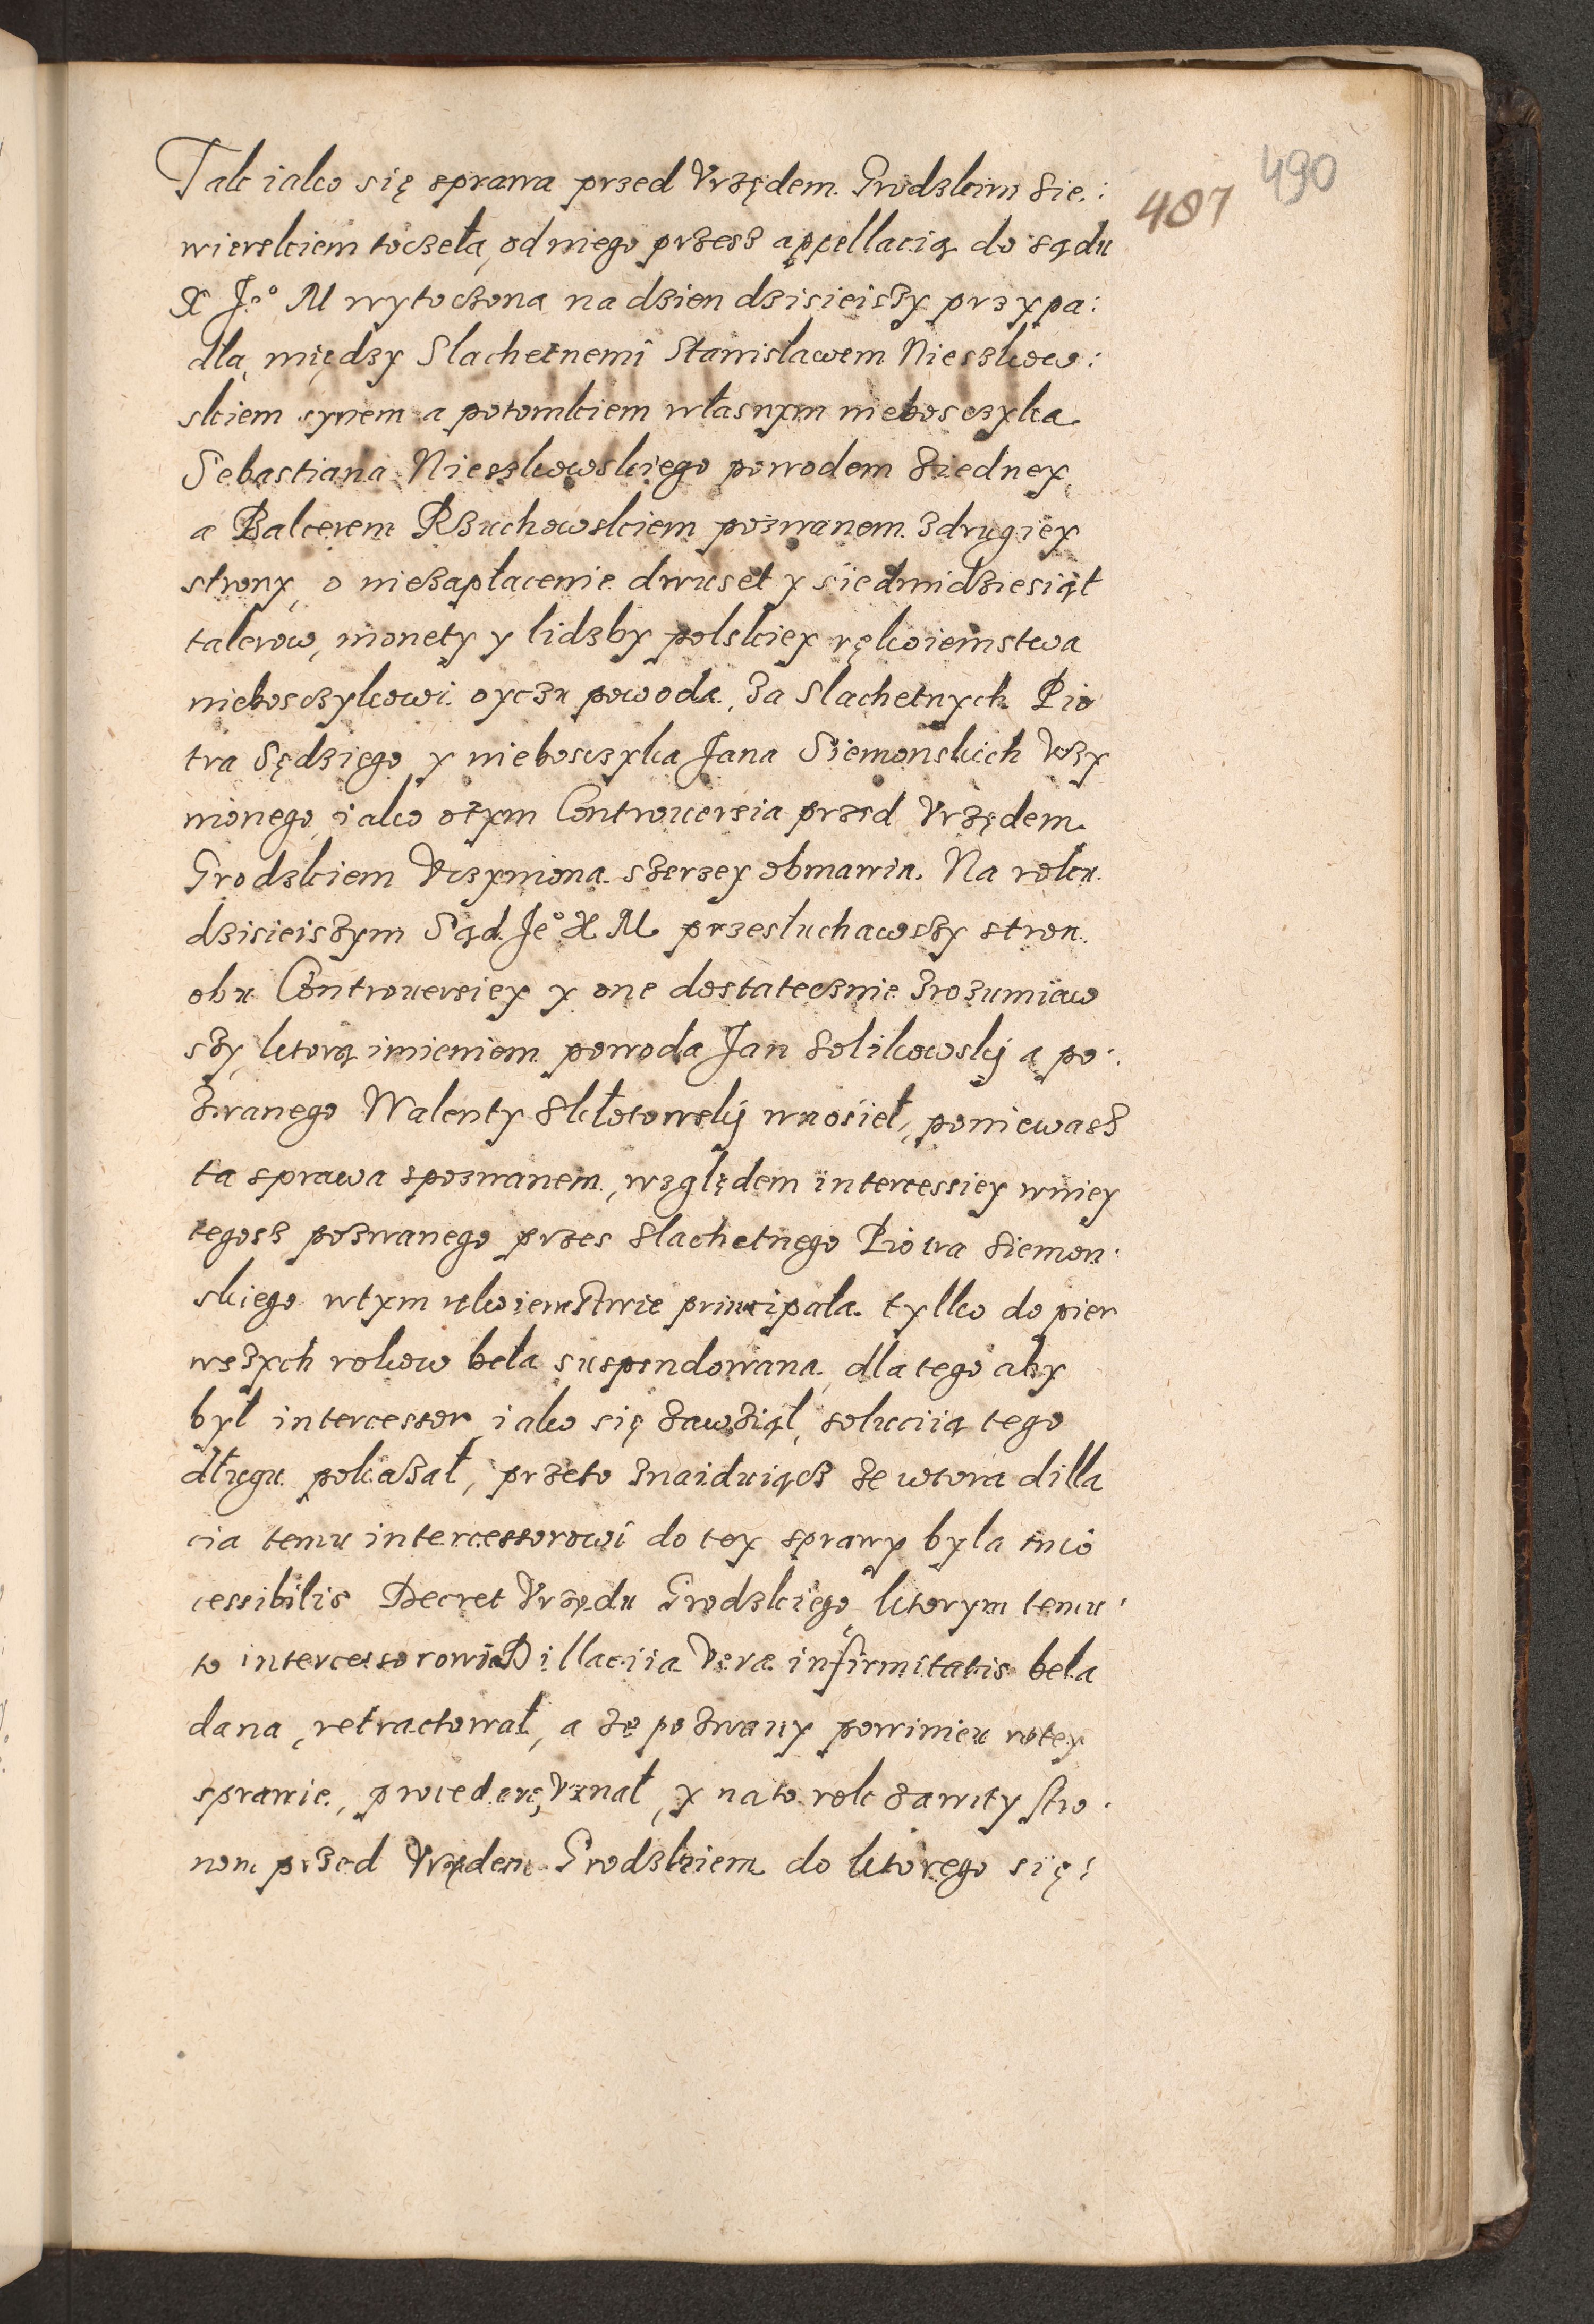 490
487
Tak iako się sprawa przed Vrzędem Grodzkim Sie:
wierskiem toczeła, od niego przesz appellacią do sądu
X Je° M wytoczona na dzien dzisieiszy przypa:
dła, między Slachetnemi Stanisławem Nieszkow:
skiem synem a potomkiem własnym nieboszczyka
Sebastiana Nieszkowskiego powodem ziedney,
a Balcerem Rzuchowskiem pozwanem zdrugiey
strony, o niezapłacenie dwuset y siedmidziesiąt
talerow, monety y lidzby polskiey rękoiemstwa
nieboszczykowi oyczu powoda, za Slachetnych Pio
tra Sędziego y nieboszczyka Jana Siemonskich Vczy
nionego, iako otym Controuersia przed Vrzędem
Grodzkiem Vczyniona szerzey obmawia. Na roku
dzisieiszym Sąd Je° X M przesłuchawszy stron
obu Controuersiey y one dostatecznie zrozumiaw
szy, ktorą imieniem powoda Jan Solikowsky a po:
zwanego Walenty Skłotowsky wnosieł, poniewasz
ta sprawa spozwanem, względem intercessiey wniey
tegosz pozwanego przes Slachetnego Piotra Siemon:
skiego wtym rękoiemstwie principała tylko do pier
wszych rokow beła suspendowana, dla tego aby
był intercessor, iako się zawziął, soluciią tego
długu pokazał, przeto znaiduiącz że wtora dilla
cia temu intercessorowi do tey sprawy była inco
cessibilis Decret Vrzędu Grodzkiego, ktorym temu
to intercessorowi Dillaciia Veræ infirmitatis beła
dana, retractował, a że pozwany powinien wtey
sprawie, procedere, Vznał, y na to rok zawity stro:
nom przed Vrzędem Grodzkiem do ktorego się: